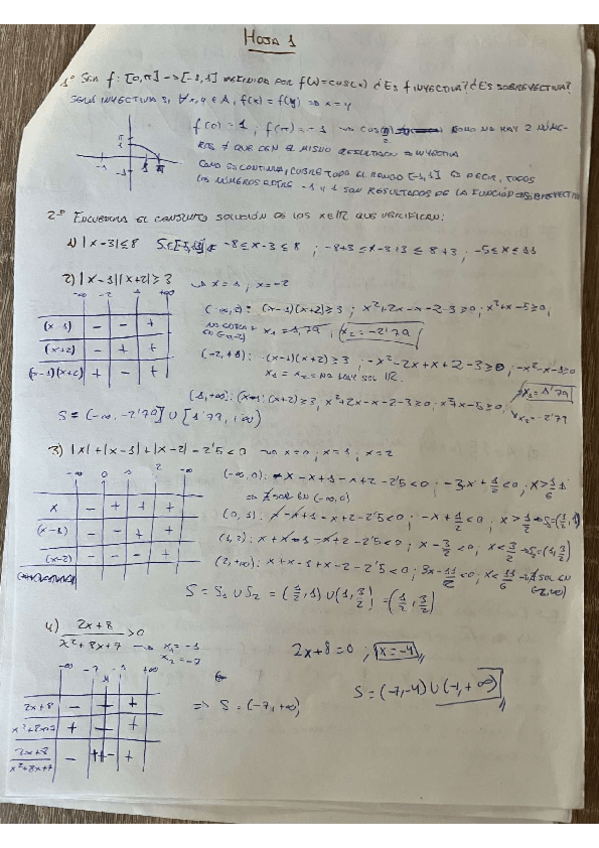 HOJA 1
1º SEA f: [0,π] → [-1,1] DEFINIDA POR f(x)=cos(x) ¿ES f INYECTIVA? ¿ES SOBREYECTIVA?
SERÁ INYECTIVA SI, ∀x,y ∈ A, f(x) = f(y) ⇒ x = y
f(0) = 1 ; f(π) = -1 COMO NO HAY 2 NÚME-
ROS ≠ QUE DEN EL MISMO RESULTADO ⇒ INYECTIVA
COMO ES CONTINUA, CUBRE TODO EL RANGO [-1,1] ES DECIR, TODOS
LOS NÚMEROS ENTRE -1 Y 1 SON RESULTADOS DE LA FUNCIÓN
2º ENCUENTRA EL CONJUNTO SOLUCIÓN DE LOS x∈ℝ QUE VERIFICAN:
1) |x-3| ≤ 8 -8 ≤ x-3 ≤ 8 ; -8+3 ≤ x-3+3 ≤ 8+3 ; -5 ≤ x ≤ 11
2) |x-1||x+2| ≥ 3 → x=1 ; x=-2
-∞ -2 1 +∞
(x-1) - - +
(x+2) - + +
(x-1)(x+2) + - +
(-∞,-2): (x-1)(x+2) ≥ 3 ; x²+2x-x-2-3 ≥ 0 ; x²+x-5 ≥ 0 ;
x₁ = 1'79 ; x₂ = -2'79
(-2,+1): -(x-1)(x+2) ≥ 3 ; -x²-2x+x+2-3 ≥ 0 ; -x²-x-1 ≥ 0
x₁ = x₂ = NO HAY SOL ℝ.
(1,+∞): (x-1)(x+2) ≥ 3 ; x²+2x-x-2-3 ≥ 0 ; x²+x-5 ≥ 0 ; x₁ = 1'79
x₂ = -2'79
S = (-∞, -2'79] ∪ [1'79, +∞)
3) |x|+|x-1|+|x-2|-2'5 < 0 → x=0 ; x=1 ; x=2
-∞ 0 1 2 -∞
x - + + +
(x-1) - - + +
(x-2) - - - +
(-∞,0): -x-x+1-x+2-2'5 < 0 ; -3x+1/2 < 0 ; x > 1/6
⇒ ∄ SOL EN (-∞,0)
(0,1): x-x+1-x+2-2'5 < 0 ; -x+1/2 < 0 ; x > 1/2 → S₁=(1/2,1)
(1,2): x+x-1-x+2-2'5 < 0 ; x-3/2 < 0 ; x < 3/2 → S₂=(1,3/2)
(2,+∞): x+x-1+x-2-2'5 < 0 ; 3x-11/2 < 0 ; x < 11/6 → ∄ SOL EN
S = S₁ ∪ S₂ = (1/2,1) ∪ (1,3/2) = (1/2,3/2)
4) 2x+8/x²+8x+7 > 0 → x₁ = -1
x₂ = -7
2x+8 = 0 ; x = -4
-∞ -7 -1 +∞
2x+8 - - +
x²+8x+7 + - +
2x+8/x²+8x+7 - +- +
⇒ S = (-7, +∞)
S = (-7,-4) ∪ (-1, +∞)